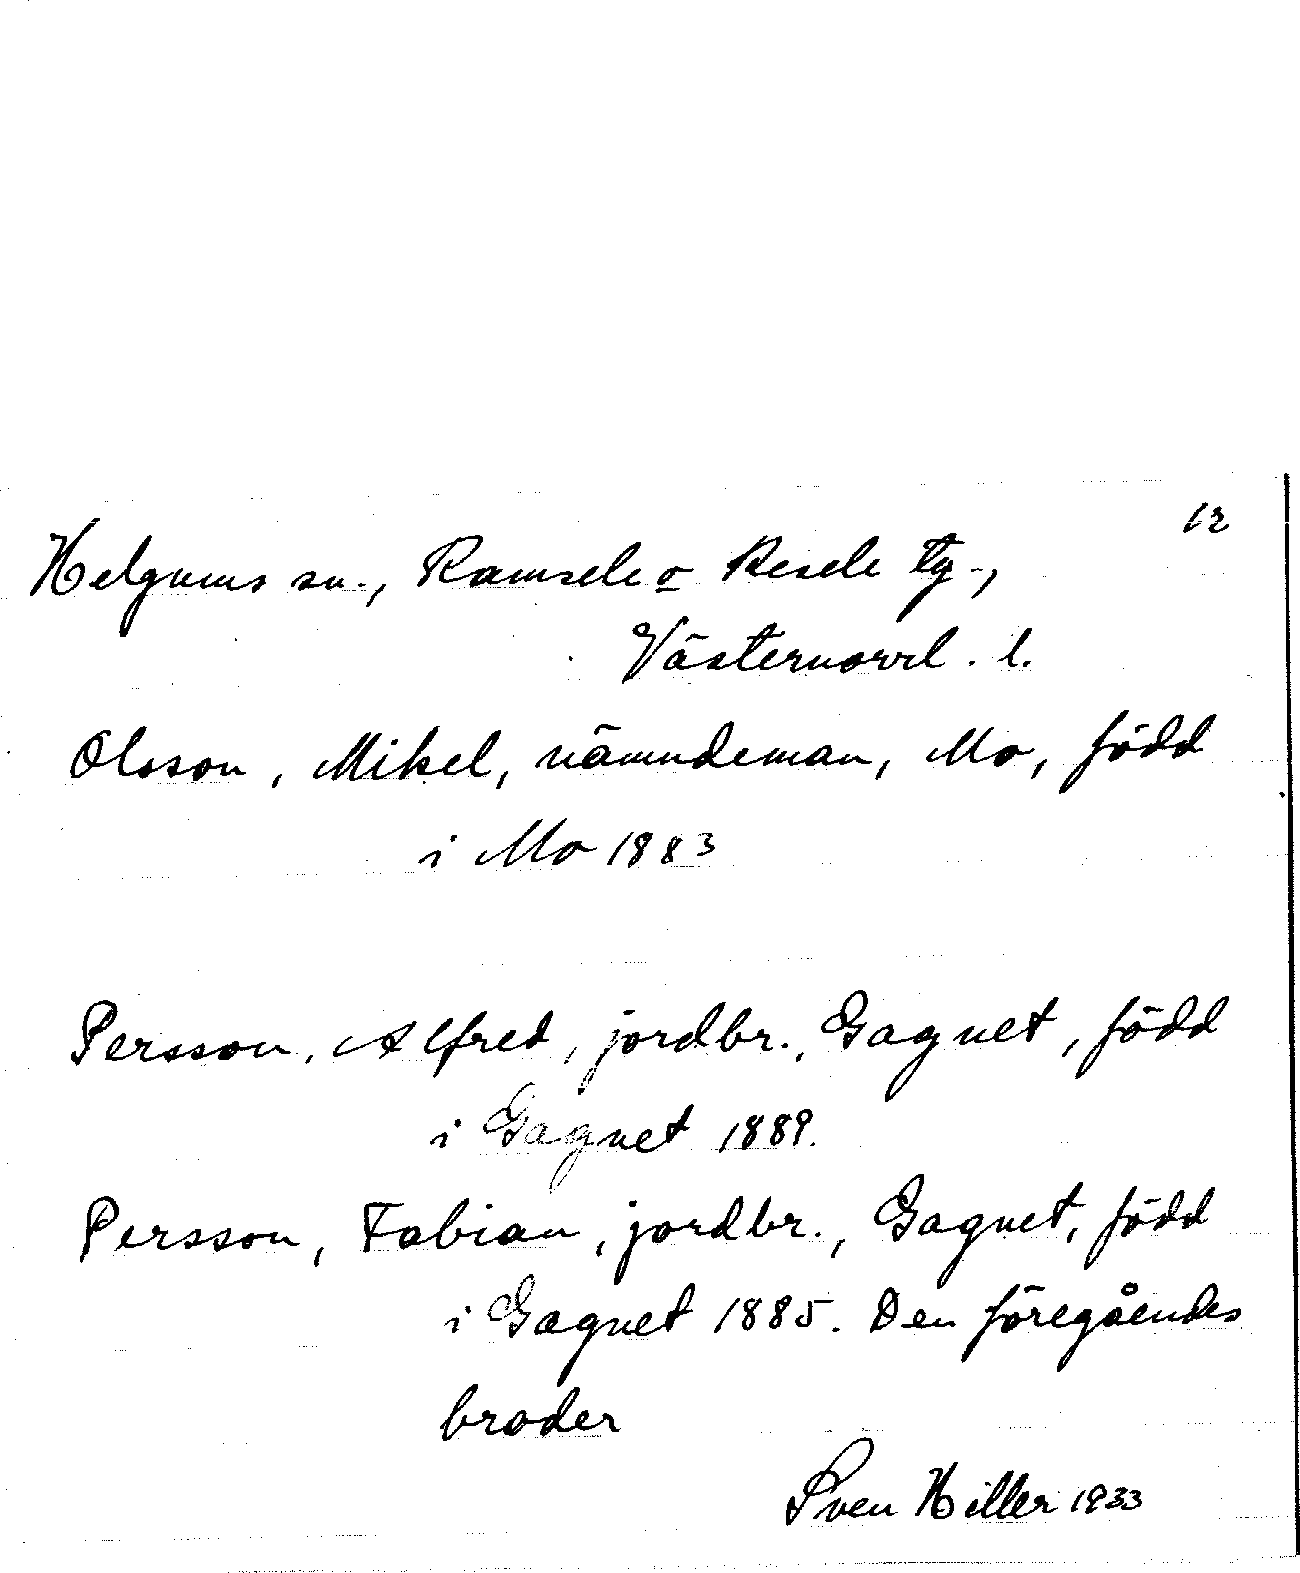 12
Helgums sn., Ramsele o Resele tg.,
Västernorrl. l.
Olsson, Mikel, nämndeman, Mo, född
i Mo 1883
Persson, Alfred, jordbr., Gagnet, född
i Gagnet 1889.
Persson, Fabian, jordbr., Gagnet, född
i Gagnet 1885. Den föregåendes
broder
Sven Hiller 1933